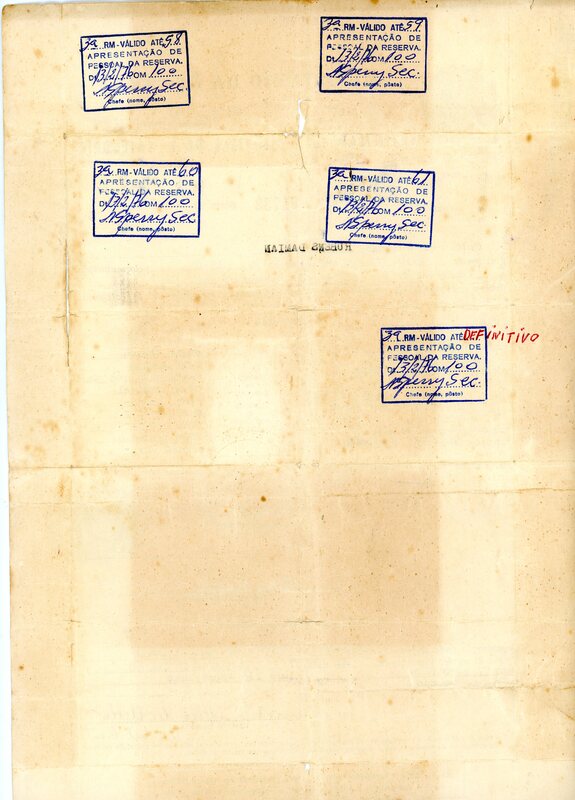 3a. RM-VÁLIDO ATÉ 58
APRESENTAÇÃO DE
PESSOAL DA RESERVA.
DI 13/2/76 OM 100
NSperry Sec.
Chefe (nome, pôsto)
3a. RM-VÁLIDO ATÉ 59
APRESENTAÇÃO DE
PESSOAL DA RESERVA.
DI 13/2/76 OM 100
NSperry Sec.
Chefe (nome, pôsto)
3a. RM-VÁLIDO ATÉ 60
APRESENTAÇÃO DE
PESSOAL DA RESERVA.
DI 13/2/76 OM 100
NSperry Sec.
Chefe (nome, pôsto)
3a. RM-VÁLIDO ATÉ 61
APRESENTAÇÃO DE
PESSOAL DA RESERVA.
DI 13/2/76 OM 100
NSperry Sec.
Chefe (nome, pôsto)
DAMIAN
3a. RM-VÁLIDO ATÉ DEFINITIVO
APRESENTAÇÃO DE
PESSOAL DA RESERVA.
DI 13/2/76 OM 100
NSperry Sec.
Chefe (nome, pôsto)